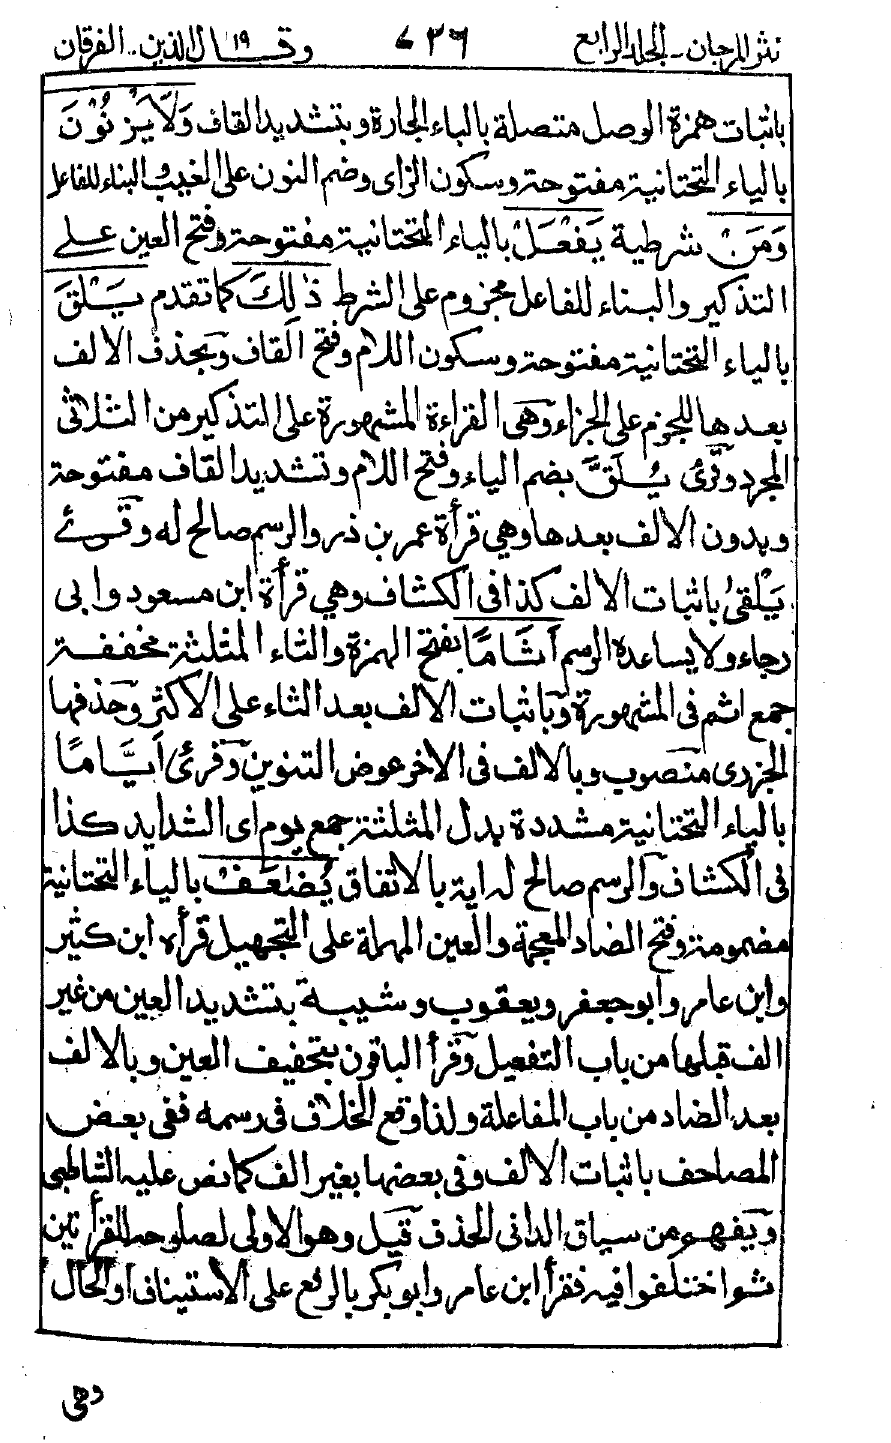 نثر المرجان ـ المجلد الرابع ٧٣٦ وقال الذين ١٩ ـ الفرقان
باثبات همزة الوصل متصلة بالباء الجارة وبتشديد القاف وَلَا يَزْنُوْنَ
بالياء التحتانية مفتوحة وسكون الزاى وضم النون على الغيب والبناء للفاعل
وَمَنْ شرطية يَفْعَلْ بالياء التحتانية مفتوحة وفتح العين على
التذكير والبناء للفاعل مجزوم على الشرط ذٰلِكَ كما تقدم يَلْقَ
بالياء التحتانية مفتوحة وسكون اللام وفتح القاف وبحذف الالف
بعدها للجزم على الجزاء وهى القراءة المشهورة على التذكير من الثلاثى
المجرد وقرئ يُلَقَّ بضم الياء وفتح اللام وتشديد القاف مفتوحة
وبدون الالف بعدها وهى قرأة عمر بن ذر والرسم صالح له وقرئ
يَلْقٰى باثبات الالف كذا فى الكشاف وهى قرأة ابن مسعود وابى
رجاء ولا يساعده الرسم أَثَامًا بفتح الهمزة والثاء المثلثة مخففة
جمع اثم فى المشهورة وباثبات الالف بعد الثاء على الاكثر وحذفها
الجزرى منصوب وبالالف فى الاخر عوض التنوين وقرئ أَيَّامًا
بالياء التحتانية مشددة بدل المثلثة جمع يوم اى الشدايد كذا
فى الكشاف والرسم صالح له اية بالاتفاق يُضٰعَفْ بالياء التحتانية
مضمومة وفتح الضاد المعجمة والعين المهملة على التجهيل قرأه ابن كثير
وابن عامر وابو جعفر ويعقوب وشيبة بتشديد العين من غير
الف قبلها من باب التفعيل وقرأ الباقون بتخفيف العين وبالالف
بعد الضاد من باب المفاعلة ولذا وقع الخلاف فى رسمه ففى بعض
المصاحف باثبات الالف وفى بعضها بغير الف كما نص عليه الشاطبى
ويفهم من سياق الدانى الحذف قيل وهو الاولى لصلوحه للقرأتين
ثم اختلفوا فيه فقرأ ابن عامر وابو بكر بالرفع على الاستيناف او الحال
وهى